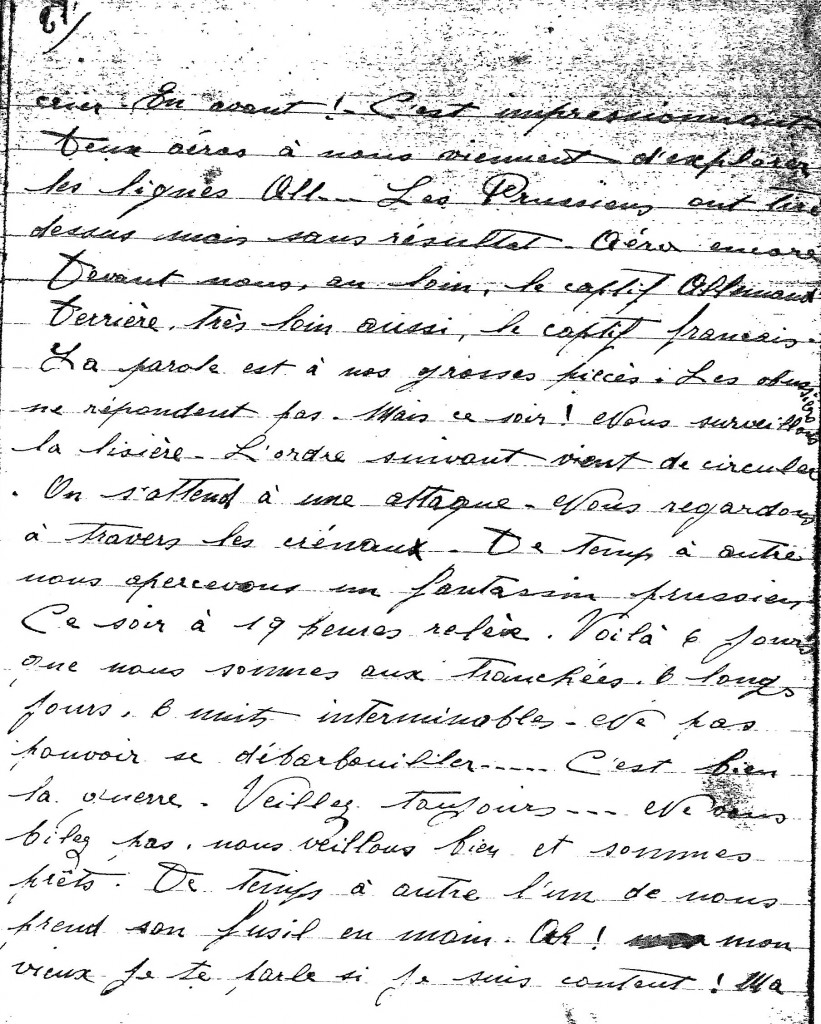 En avant ! - C'est impressionnant
Deux aéros à nous viennent d'explorer
les lignes All... Les Prussiens ont tiré
dessus mais sans résultat - Aéro encore
Devant nous, au loin, le captif Allemand
Derrière, très loin aussi, le captif francais.
La parole est à nos grosses pièces. Les obusiers
ne répondent pas. Mais ce soir ! Nous surveillons
la lisière - L'ordre suivant vient de circuler
. On s'attend à une attaque - Nous regardons
à travers les crénaux - De temps à autre
nous apercevons un fantassin prussien
Ce soir à 19 heures relève. Voilà 6 jours
que nous sommes aux tranchées. 6 longs
jours, 6 nuits interminables - Ne pas
pouvoir se débarbouiller..... C'est bien
la guerre - Veillez toujours --- Ne vous
bilez pas, nous veillons bien et sommes
prêts. De temps à autre l'un de nous
prend son fusil en main. Ah ! mon
vieux je te parle si je suis content ! Ma